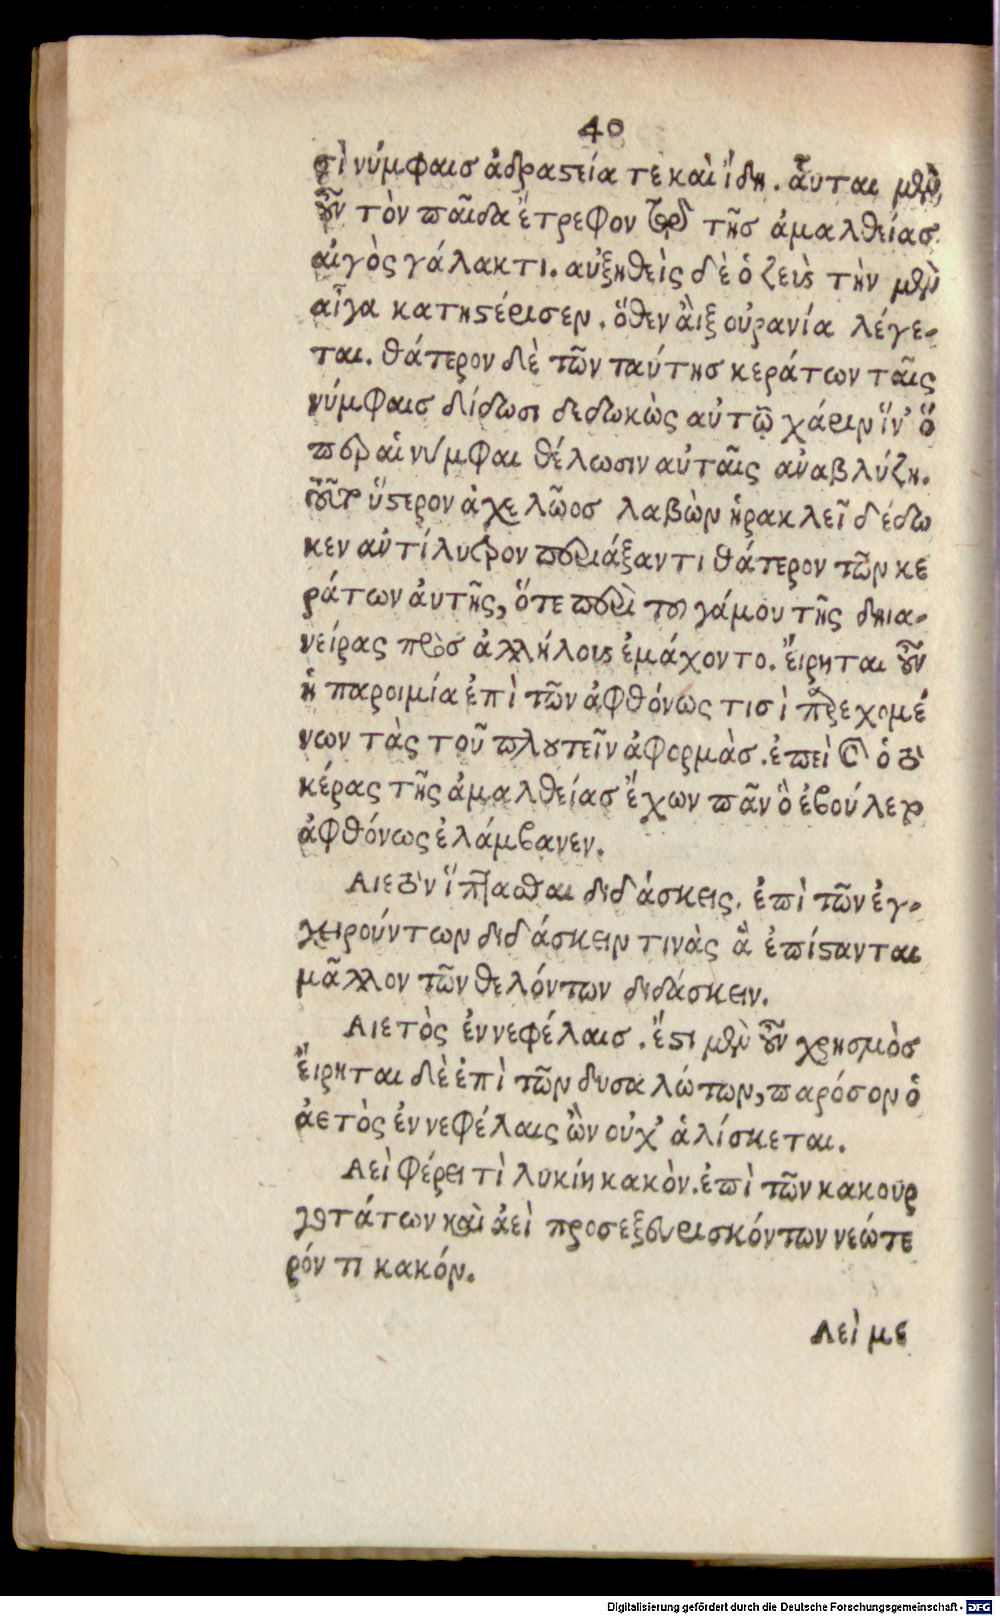 40
σὶ νύμφαισ ἀδραστεία τε καὶ ἴδη. ἇυται μὲν
οὖν τὸν παῖδα ἔτρεφον τῷ τῆσ ἀμαλθείασ
αἰγὸς γάλακτι. αὐξηθεὶς δὲ ὁ ζεὺς τὴν μὲν
αἶγα κατηστέρισεν. ὅθεν ἂιξ οὐρανία λέγε-
ται. θάτερον δὲ τῶν ταύτησ κεράτων ταῖς
νύμφαισ δίδωσι δεδωκὼς αὐτῷ χάριν ἵν' ὅ
περ αἱ νύμφαι θέλωσιν αὐταῖς ἀναβλύζη.
ὕστερον ἀχελῶοσ λαβὼν ἡρακλεῖ δέδω
κεν ἀντίλυτρον περιάξαντι θάτερον τῶν κε
ράτων ἀυτῆς, ὅτε περὶ του γάμου τῆς δηια-
νείρας πρὸσ ἀλλήλους ἐμάχοντο. ἔιρηται οὖν
ἡ παροιμία ἐπὶ τῶν ἀφθόνως τισὶ παρεχομέ
νων τὰς τοῦ πλουτεῖν ἀφορμὰσ. ἐπεὶ καὶ ὁ τὸ
κέρας τῆς ἀμαλθείασ ἔχων πᾶν ὃ ἐβούλετο
ἀφθόνως ἐλάμβανεν.
Αιετὸν ἵπτασθαι διδάσκεις. ἐπὶ τῶν ἐγ-
χειρούντων διδάσκειν τινὰς ἃ ἐπίστανται
μᾶλλον τῶν θελόντων διδάσκειν.
Αιετὸς ἐν νεφέλαισ. ἔστι μὲν οὖν χρησμὸσ
ἔιρηται δὲ ἐπὶ τῶν δυσαλώτων, παρόσον ὁ
ἀετὸς ἐν νεφέλαις ὢν οὐχ' ἁλίσκεται.
Αεὶ φέρει τὶ λυκίη κακὸν. ἐπὶ τῶν κακουρ
γοτάτων καὶ ἀεὶ προσεξευρισκόντων νεώτε
ρόν τι κακόν.
Αεὶ με
Digitalisierung gefördert durch die Deutsche Forschungsgemeinschaft - DFG